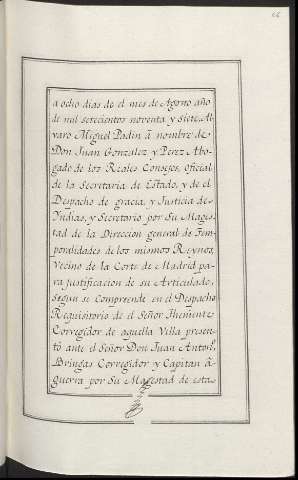 a ocho dias de el mes de Agosto año
de mil setecientos noventa y Siete, Al
varo Miguel Padin â nombre de
Don Juan Gonzalez y Perez Abo
gado de los Reales Consejos, Oficial
de la Secretaria de Estado, y de el
Despacho de gracia, y Justicia de
Yndias, y Secretario por Su Mages
tad de la Direccion general de Tem
poralidades de los mismos Reynos,
Vecino de la Corte de Madrid pa
ra justificacion de su Articulado,
Segun se Comprende en el Despacho
Requisitorio de el Señor Theniente
Corregidor de aquella Villa presen
tó ante el Señor Don Juan Antonº
Bringas Corregidor y Capitan â
guerra por Su Magestad de esta